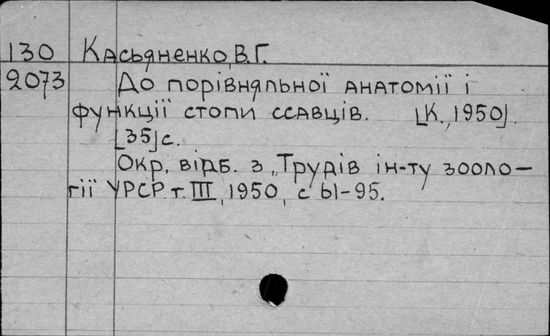 130 Касьяненко, В.Г.
2073 До порівняльної анатомії і
функції стопи ссавців. [К., 1950].
[35] с.
Окр. відб. з „Трудів ін-ту зооло-
гії УРСР. т. III, 1950, с 61-95.